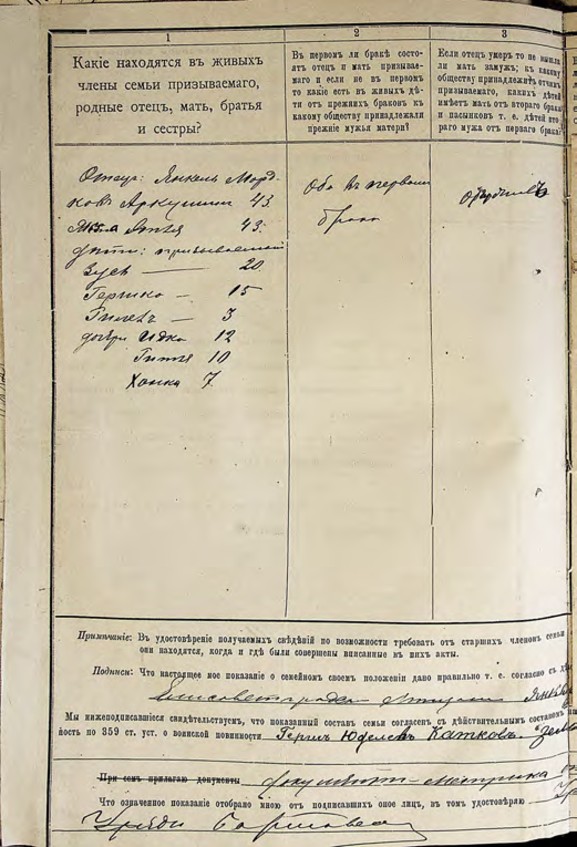 1
2
3
Какіе находятся въ живыхъ
члены семьи призываемаго,
родные отецъ, мать, братья
и сестры?
Въ первомъ ли бракѣ состо-
ятъ отецъ и мать призывае-
маго и если не въ первомъ
то какіе есть въ живыхъ дѣ-
ти отъ прежнихъ браковъ къ
какому обществу принадлежали
прежніе мужья матери?
Если отецъ умеръ то не вышла
ли мать замужъ; къ какому
обществу принадлежитъ отчимъ
призываемаго, какихъ дѣтей
имѣетъ мать отъ втораго брака
и пасынковъ т. е. дѣтей вто-
раго мужа отъ перваго брака?
Отецъ: Янкель Морд-
ковъ Аркушин 43
43
дѣти: призываемый
Зусь — 20
Гершко — 15
— 3
дочери Идка 12
Гитля 10
Ханка 7
Оба въ первомъ
бракѣ
Примѣчаніе: Въ удостовѣреніе получаемыхъ свѣдѣній по возможности требовать отъ старшихъ членовъ семьи
они находятся, когда и гдѣ были совершены вписанные въ нихъ акты.
Подписи: Что настоящее мое показаніе о семейномъ своемъ положеніи дано правильно т. е. согласно съ
Елисаветградск
Мы нижеподписавшіеся свидѣтельствуемъ, что показанный составъ семьи согласенъ съ дѣйствительнымъ составомъ
ность по 359 ст. уст. о воинской повинности Герш Юделевъ Катковъ
При семъ прилагаю документы документъ метрика
Что означенное показаніе отобрано мною отъ подписавшихъ оное лицъ, въ томъ удостовѣряю